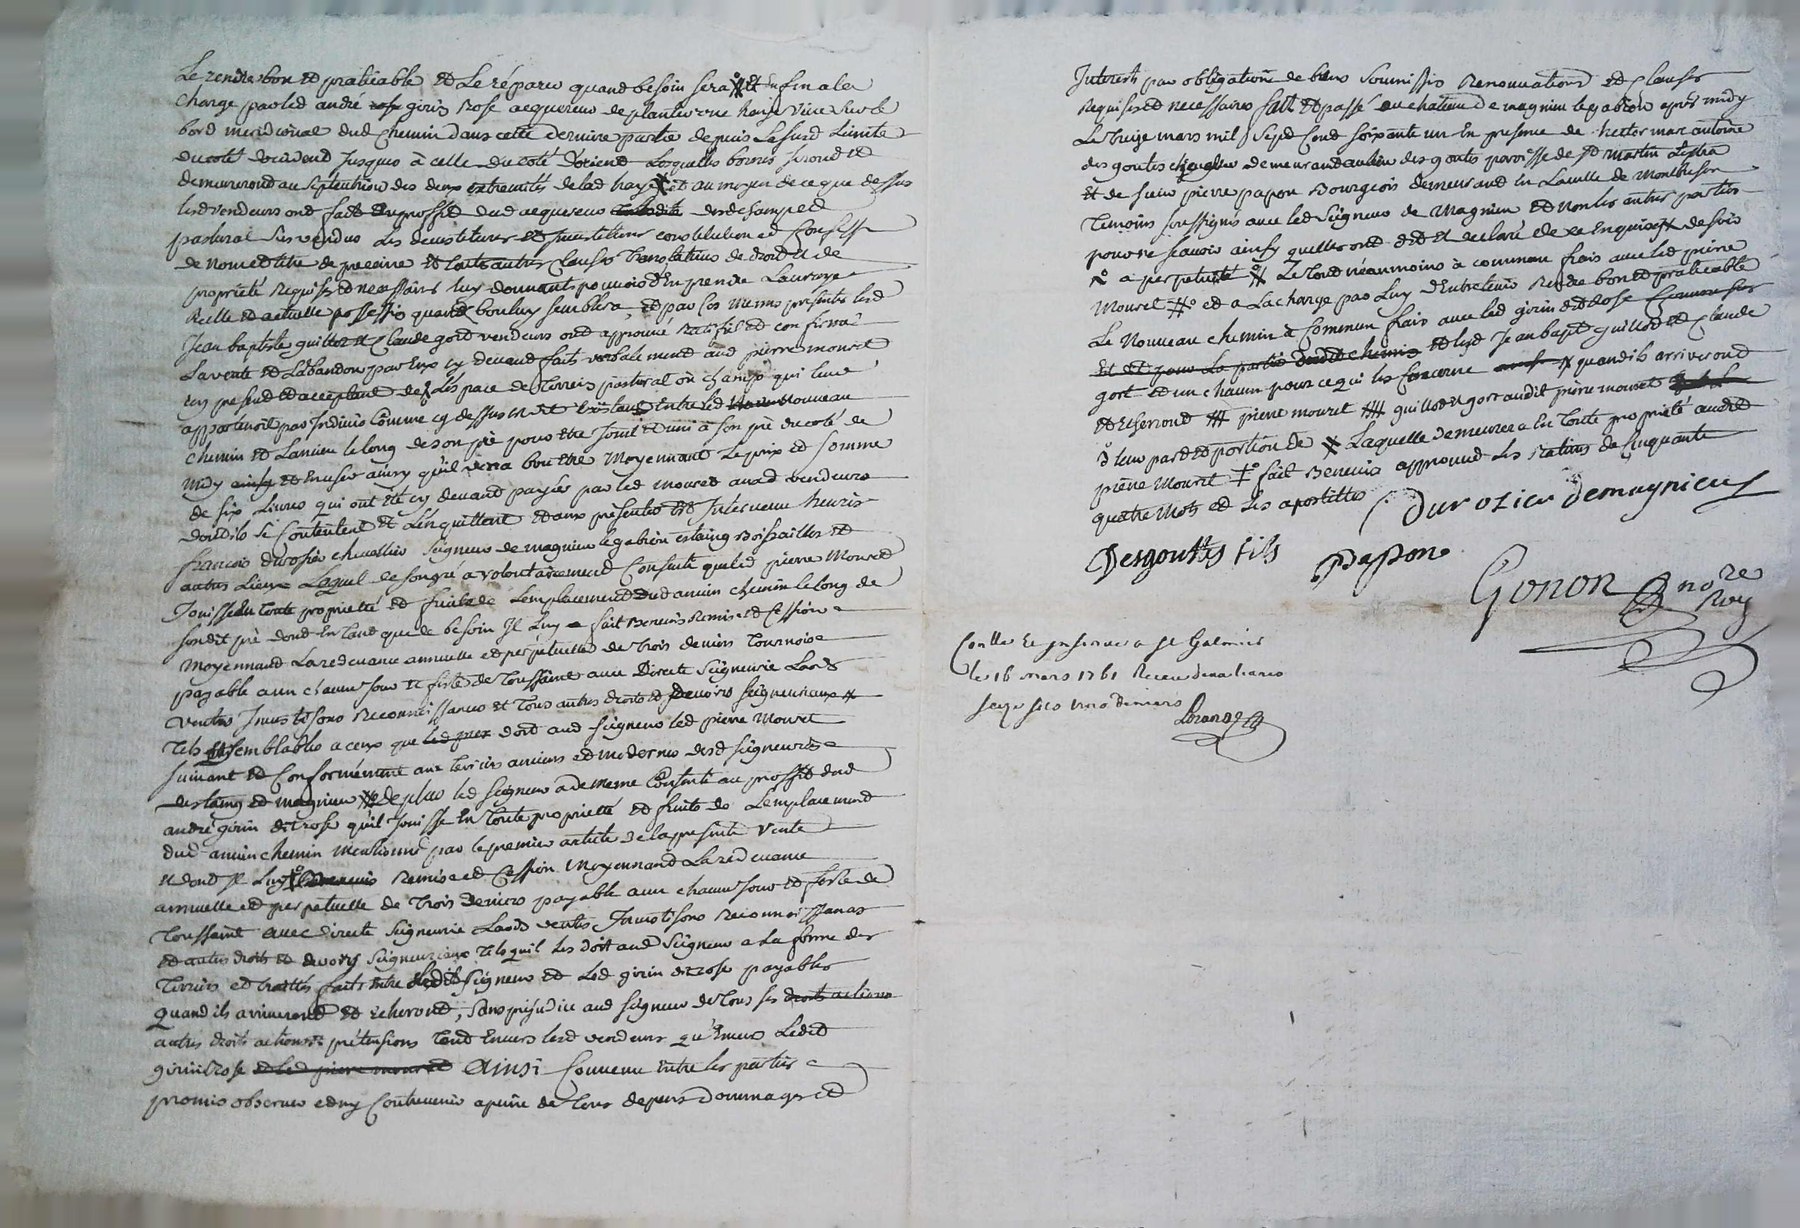 Le rendre bon et praticable et Le réparer quand besoin sera et Enfin a la
charge par led andré girin Rose acquereur de planter une haye vive sur le
bord meridional dud chemin dans cette derniere partie depuis La susd Limite
du coté doccident Jusques à celle du coté d'orient Lesquelles bornes seront et
demeureront au septentrion des deux extremités de lad haye et au moyen de ce que dessus
lesd vendeurs ont fait au proffit dud acquereur desd champ et
pastural sus vendus Les devestitures et Investitures constitution et Confess
de nom et titre de precaire et touts autres Clauses Translatives de droit et de
propriété Requises et necessaires luy donnants pouvoir d'En prendre La vraye
Reelle et actuelle possessio quand bon luy semblera, et par ces memes presentes lesd
Jean baptiste guillot et Claude gort vendeurs ont approuvé Ratifié et confirmé
La vente et L'abandon par Eux cy devant faits verbalement aud pierre mouret
icy present et acceptant de L'espace de terrein pastural ou champ qui leur
appartenoit par Indivis Comme cy dessus et Existant Entre led nouveau
chemin et L'ancien le long de son pré pour Etre Joint et uni à son pré du coté de
midy et En user ainsy qu'il verra bon Etre Moyennant Le prix et somme
de six Livres qui ont été cy devant payées par led mouret auxd vendeurs
dont ils se Contentent et L'en quittent et aux presentes Est Intervenu heuris
françois durosier chevallier Seigneur de magnieu le gabion estaing boissailles et
autres Lieux Lequel de son gré a volontairement Consenti que led pierre Mouret
Jouisse En toute proprieté et fruits de L'emplacement dud ancien chemin le long de
sondit pré dont En tant que de besoin Il Luy fait Benevis Remise et Cession
Moyennant La redevance annuelle et perpetuelle de Trois deniers tournois
payable a un chacun Jour et feste de Toussaint avec Directe Seigneurie Laods
Ventes Investisons Reconnoissances et Tous autres droits et Devoirs Seigneuriaux
tels et semblables a ceux que doit aud seigneur led pierre Mouret
suivant et Conformément aux terriers anciens et modernes desd Seigneuries
destaing et magnieu de plus led seigneur a de meme Consenti au proffit dud
andré girin dit rose qu'il Jouisse En toute proprieté et fruits de L'emplacement
dud ancien chemin mentionné par le premier article de la presente Vente
et dont Il Luy Remise et Cession Moyennant La redevance
annuelle et perpetuelle de Trois deniers payable a un chacun Jour et feste de
Toussaint avec directe Seigneurie Laods ventes Investisons Reconnoissances
et autres droits et devoirs Seigneuriaux Tels qu'il les doit aud Seigneur a la forme des
Terriers et traittés faits Entre ledit Seigneur et Led girin dit rose payables
quand ils arriveront et Echeront, sans prejudice aud seigneur de tous ses droits actions
autres droits actions et pretensions tant Envers lesd vendeurs qu'Envers Ledit
girin Rose et led pierre mouret Ainsi Convenu Entre les parties
promis observer et n'y Contrevenir a peine de tous depens Dommages et
Interests par obligation de biens Soumissio Renonciations et Clauses
Requises et necessaires fait et passé au chateau de magnieu le gabion apres midy
Le treize mars mil Sept Cent soixante un En presence de hector marc antoine
des goutes demeurant au lieu des goutes paroisse de st martin Lestra
et de sieur pierre papon Bourgeois demeurant En La ville de Montbrison
temoins soussignés avec led Seigneur de Magnieu et non les autres parties
pour ne scavoir ainsy quelles ont dit et declaré de ce Enquises de soir
a perpetuité Le tout néanmoins à commun frais avec led pierre
Mouret et a La charge par Luy d'Entretenir Rendre bon et praticable
Le Nouveau chemin à Commun frais avec led girin dit Rose
et lesd Jean bapte guillot et Claude
gort et un chacun pour ce qui les Concerne quand ils arriveront
et Echerront pierre mouret guillot et gort audit pierre mouret
leur part et portion de Laquelle demeurera En toute proprieté audit
pierre Mouret fait Benevis approuvé Les ratures de Cinquante
quatre Mots et Les apostilles Durosier demagnieu
Desgouttes fils papon Gonon nore Roy
Conllé Et Insinué a St Galmier
le 16 mars 1761 Receu
seize sols trois deniers